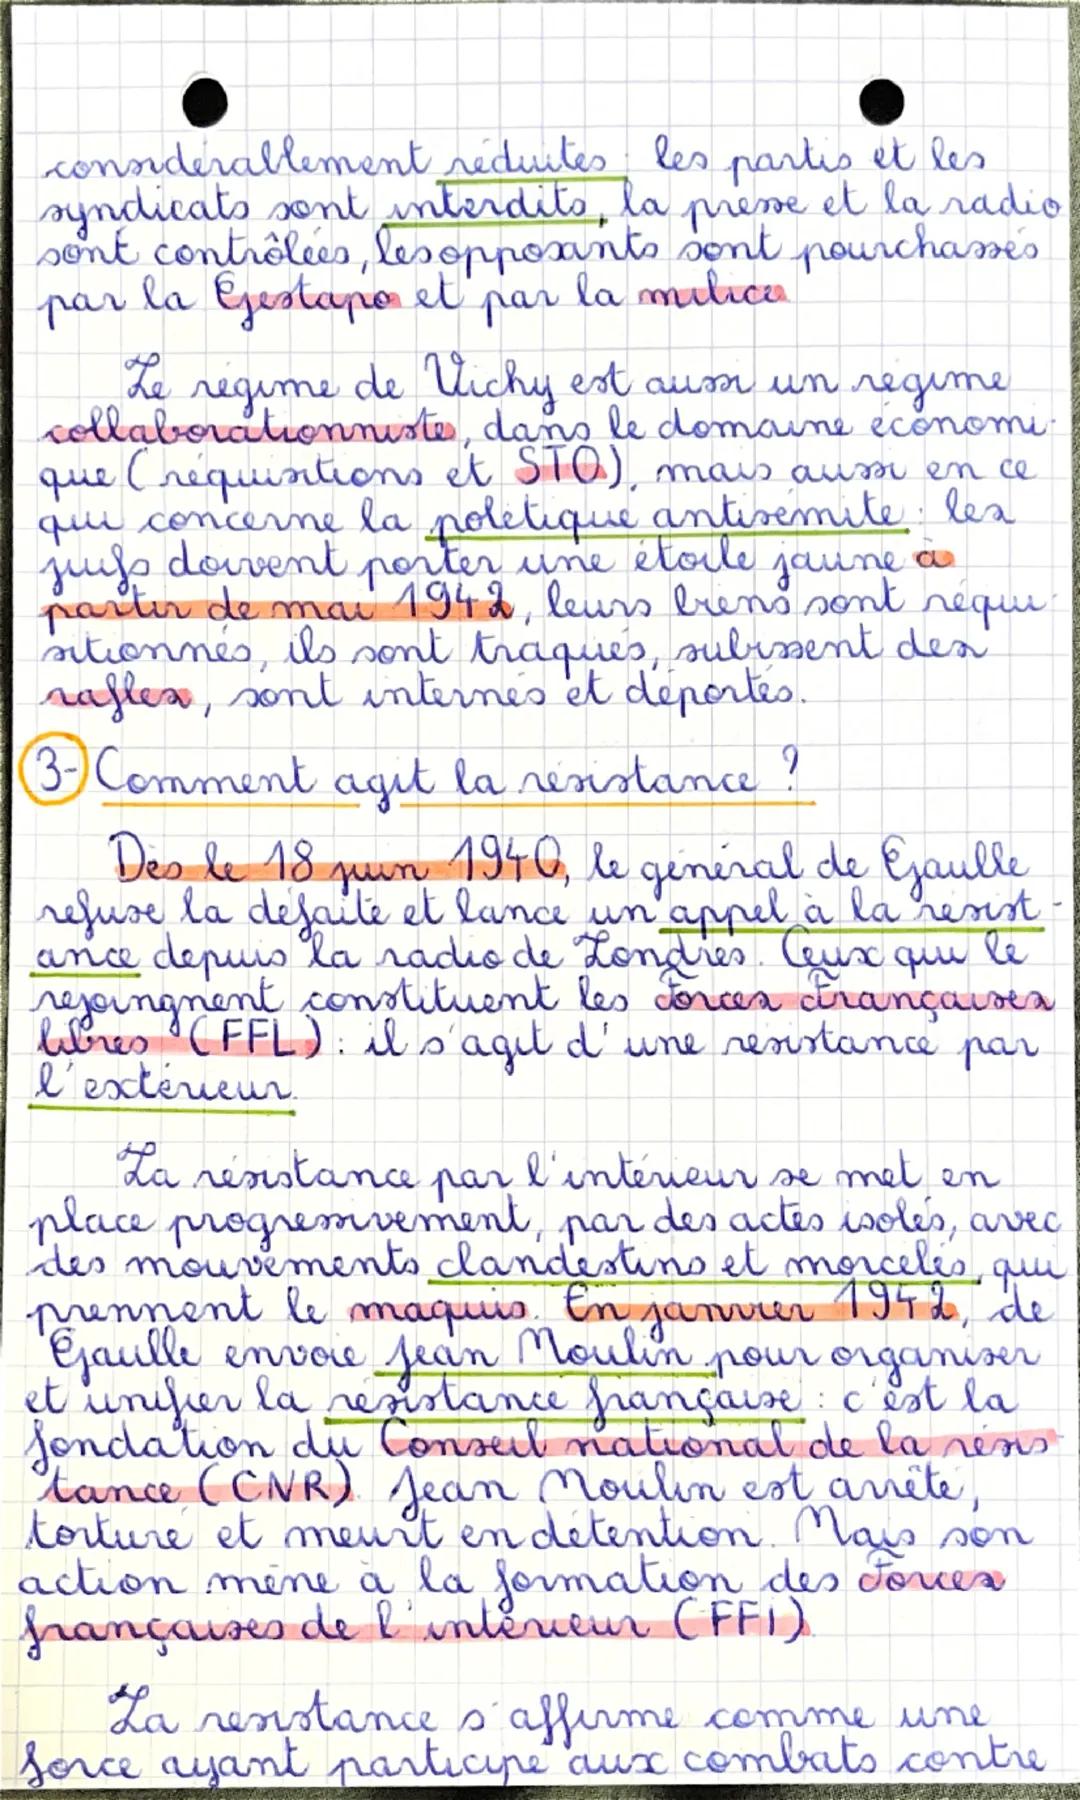 considérablement réduites : les partis et les
syndicats sont interdits, la presse et la radio
sont contrôlées, les opposants sont pourchassés
par la Gestapo et par la milice
Le régime de Vichy est aussi un régime
collaborationniste, dans le domaine économi-
que (réquisitions et STO), mais aussi en ce
qui concerne la politique antisémite : les
juifs doivent porter une étoile jaune à
partir de mai 1942, leurs biens sont réqui-
sitionnés, ils sont traqués, subissent des
rafles, sont internés et déportés.
3- Comment agit la résistance ?
Dès le 18 juin 1940, le général de Gaulle
refuse la défaite et lance un appel à la résist-
ance depuis la radio de Londres. Ceux qui le
rejoingnent constituent les Forces Françaises
libres (FFL) : il s'agit d'une résistance par
l'extérieur.
La résistance par l'intérieur se met en
place progressivement, par des actes isolés, avec
des mouvements clandestins et morcelés, qui
prennent le maquis. En janvier 1942, de
Gaulle envoie Jean Moulin pour organiser
et unifier la résistance française : c'est la
fondation du Conseil national de la résis-
tance (CNR). Jean Moulin est arrêté,
torturé et meurt en détention. Mais son
action mène à la formation des Forces
françaises de l'intérieur (FFI).
La résistance s'affirme comme une
force ayant participé aux combats contre